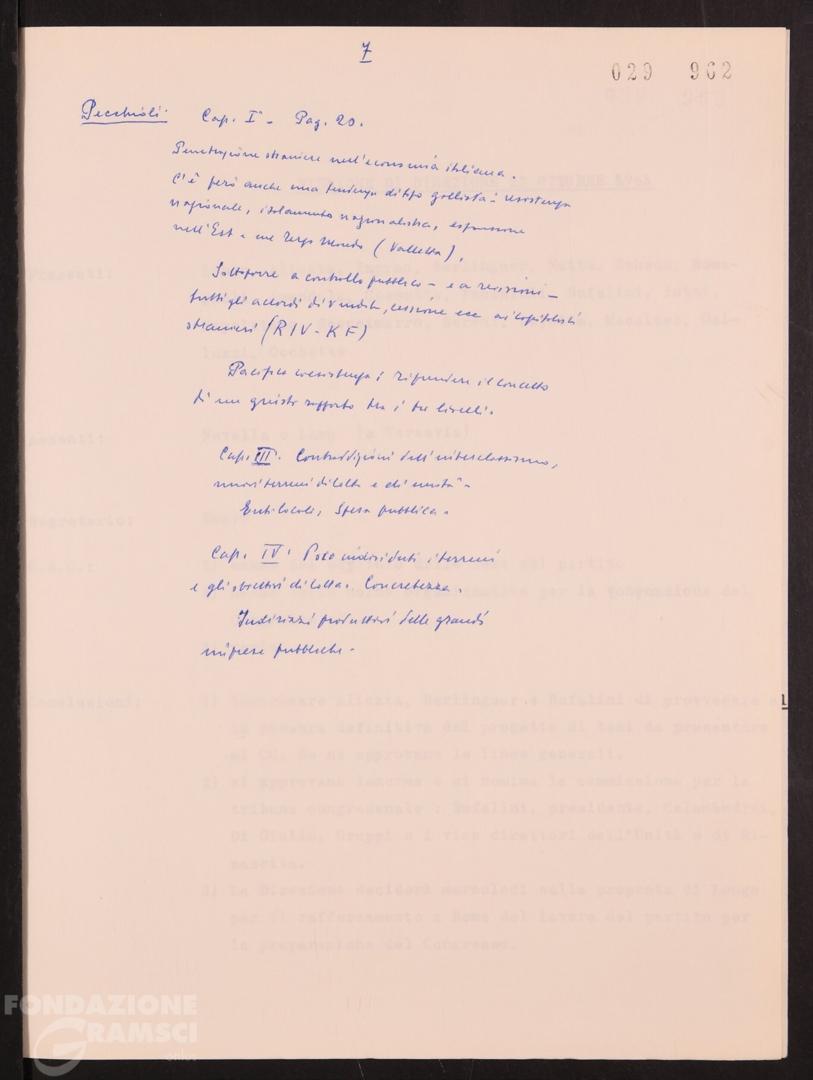 7
029 962
Pecchioli: Cap. I - Pag. 20.
Penetrazione straniera nell'economia italiana.
C'è però anche una tendenza di tipo gollista: resistenza
nazionale, isolamento nazionalista, espansione
nell'Est e nel Terzo Mondo (Valletta).
Sottoporre a controllo pubblico - e a revisioni -
tutti gli accordi di vendita, cessione ecc ai capitalisti
stranieri (RIV-KF)
Pacifica coesistenza: rifondere il concetto
di un giusto rapporto tra i tre livelli.
Cap. III. Contraddizioni dell'interclassismo,
nuovi terreni di lotta e di unità -
Enti locali, Spesa pubblica.
Cap. IV: Poco individuati i terreni
e gli obiettivi di lotta. Concretezza.
Indirizzi produttivi delle grandi
imprese pubbliche -
FONDAZIONE
GRAMSCI
onlus